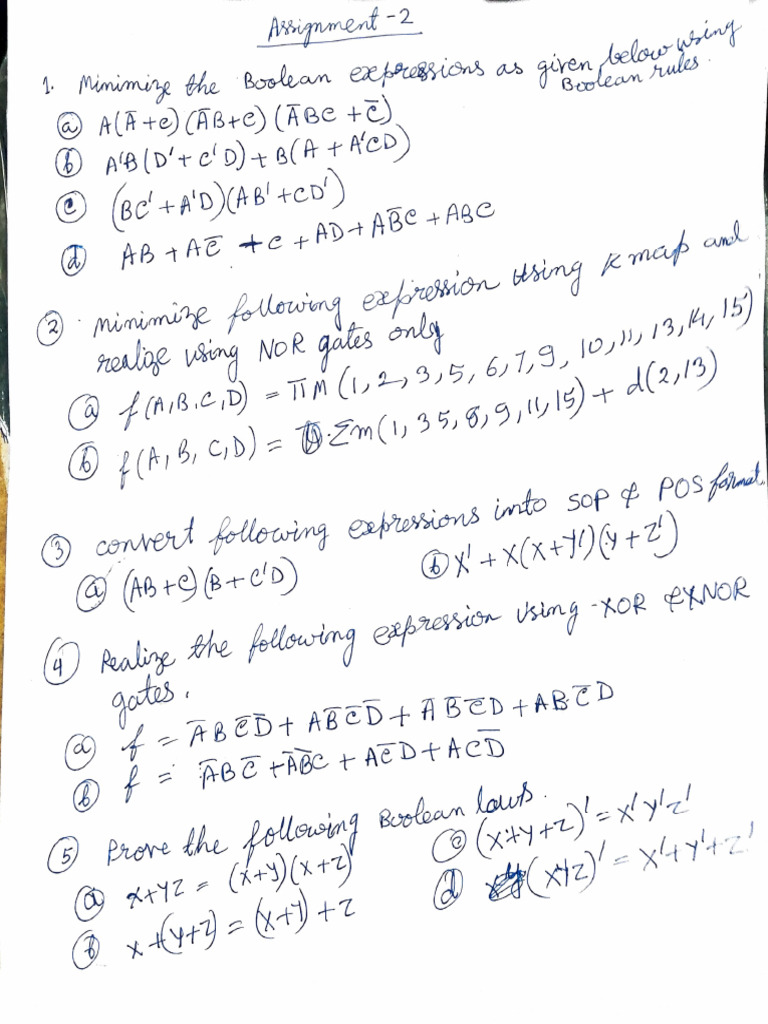 Assignment-2
1. Minimize the Boolean expressions as given below using
Boolean rules.
(a) A(Ā+C)(ĀB+C)(ĀBC+C̄)
(b) A'B(D'+C'D)+B(A+A'CD)
(c) (BC'+A'D)(AB'+CD')
(d) AB+AC̄+C+AD+AB̄C+ABC
(2) Minimize following expression using K map and
realize using NOR gates only
(a) f(A,B,C,D) = ΠM(1,2,3,5,6,7,9,10,11,13,14,15)
(b) f(A,B,C,D) = Σm(1,35,8,9,11,15)+d(2,13)
(3) Convert following expressions into SOP & POS format.
(a) (AB+C)(B+C'D) (b) X'+X(X+Y')(Y+Z')
(4) Realize the following expression using -XOR & XNOR
gates.
(a) f = ĀBC̄D̄+AB̄C̄D̄+ĀB̄C̄D+ABC̄D
(b) f = ĀBC̄+ĀB̄C+AC̄D+ACD̄
(5) Prove the following Boolean laws.
(a) x+yz = (x+y)(x+z) (c) (x+y+z)'=x'y'z'
(b) x+(y+z)=(x+y)+z (d) (xyz)'=x'+y'+z'